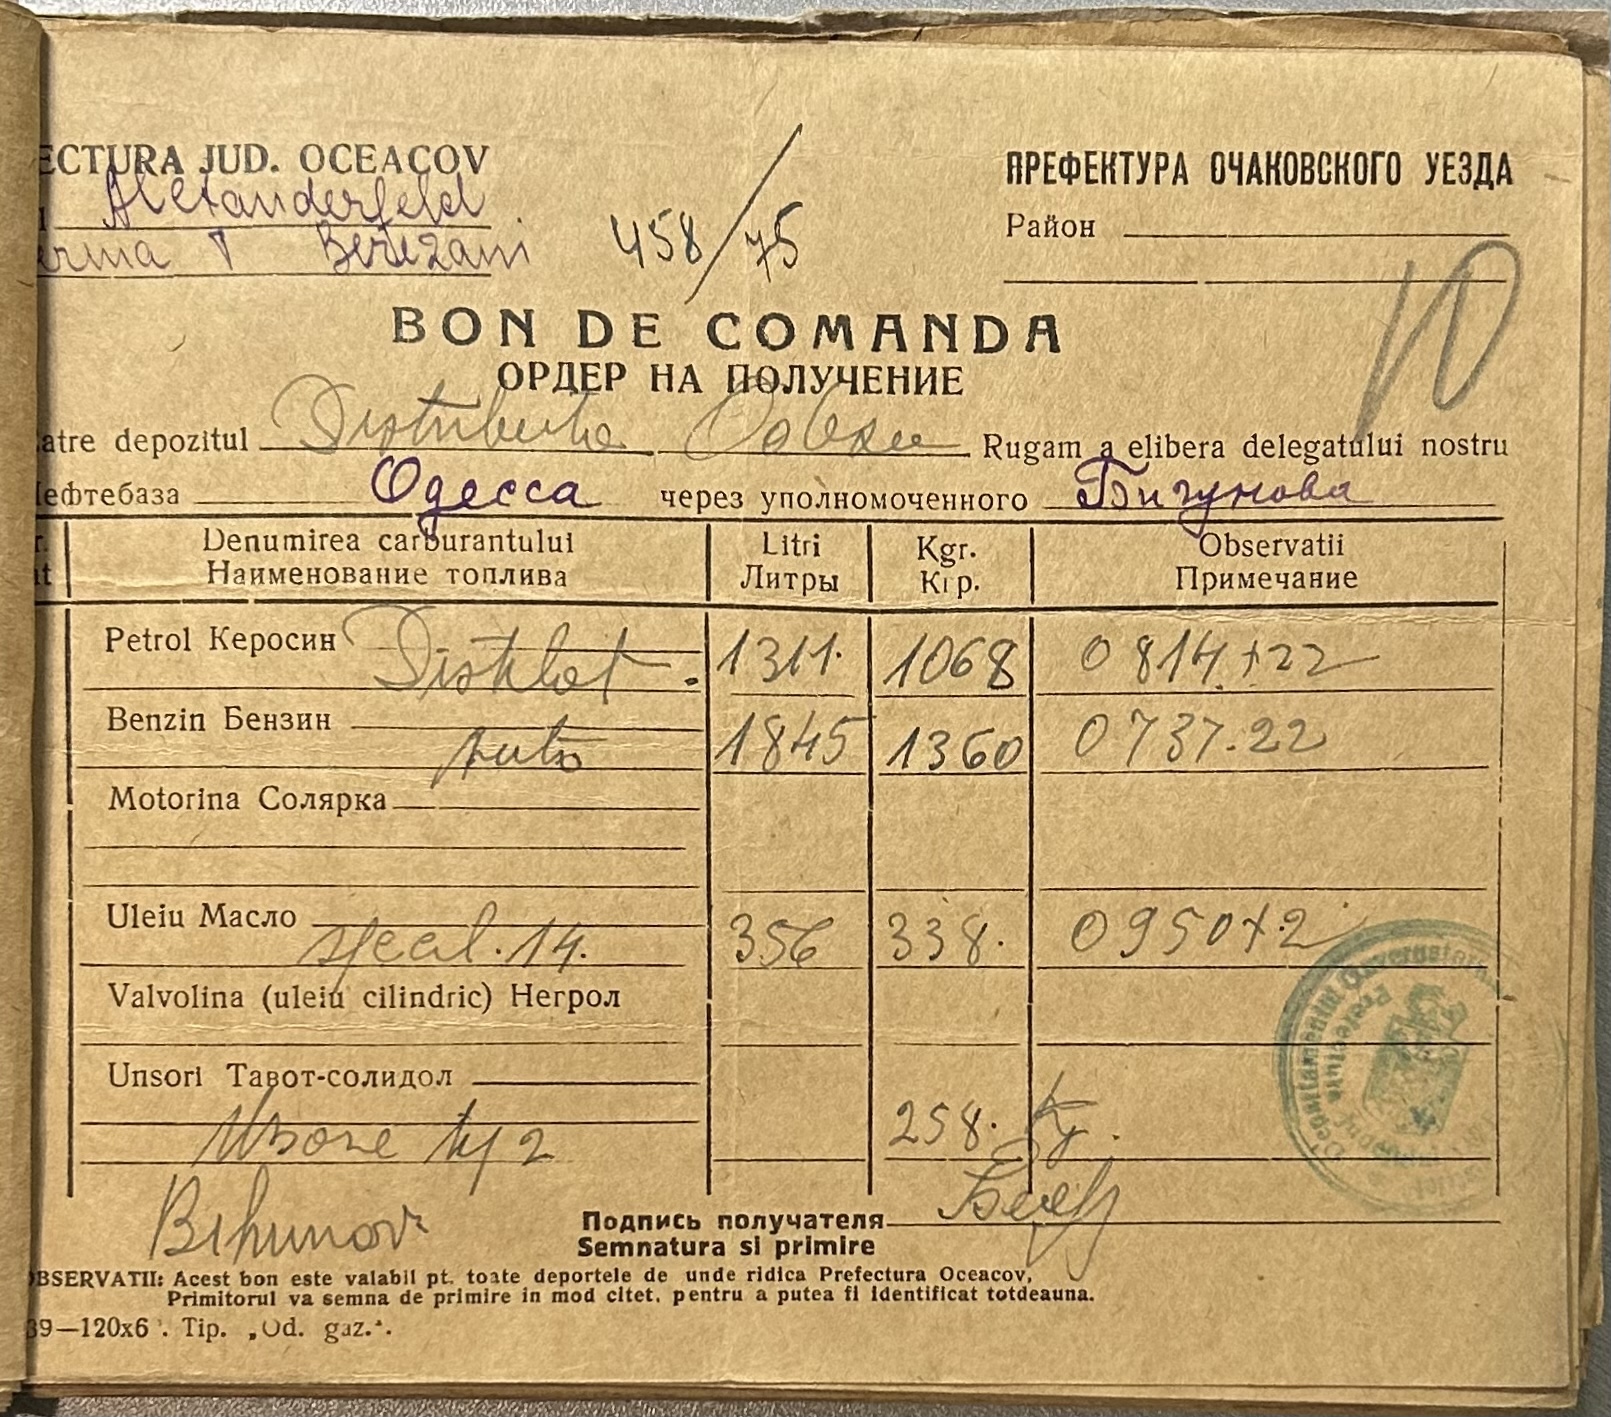 ECTURA JUD. OCEACOV
ПРЕФЕКТУРА ОЧАКОВСКОГО УЕЗДА
Alexanderfeld
Район
erma Berezani
458/75
10
BON DE COMANDA
ОРДЕР НА ПОЛУЧЕНИЕ
atre depozitul Distributia Odessa Rugam a elibera delegatului nostru
ефтебаза Одесса через уполномоченного Бигунова
Denumirea carburantului Litri Kgr. Observatii
Наименование топлива Литры Кгр. Примечание
Petrol Керосин Distilat 1311. 1068 0814+22
Benzin Бензин auto 1845 1360 0737.22
Motorina Солярка
Uleiu Масло special. 14. 356 338. 0950+2
Valvolina (uleiu cilindric) Негрол
Unsori Тавот-солидол
Unsore 2 258. Kg.
Bihunov
Подпись получателя
Semnatura si primire
OBSERVATII: Acest bon este valabil pt. toate deportele de unde ridica Prefectura Oceacov,
Primitorul va semna de primire in mod citet, pentru a putea fi identificat totdeauna.
39—120x6 . Tip. „Od. gaz.".